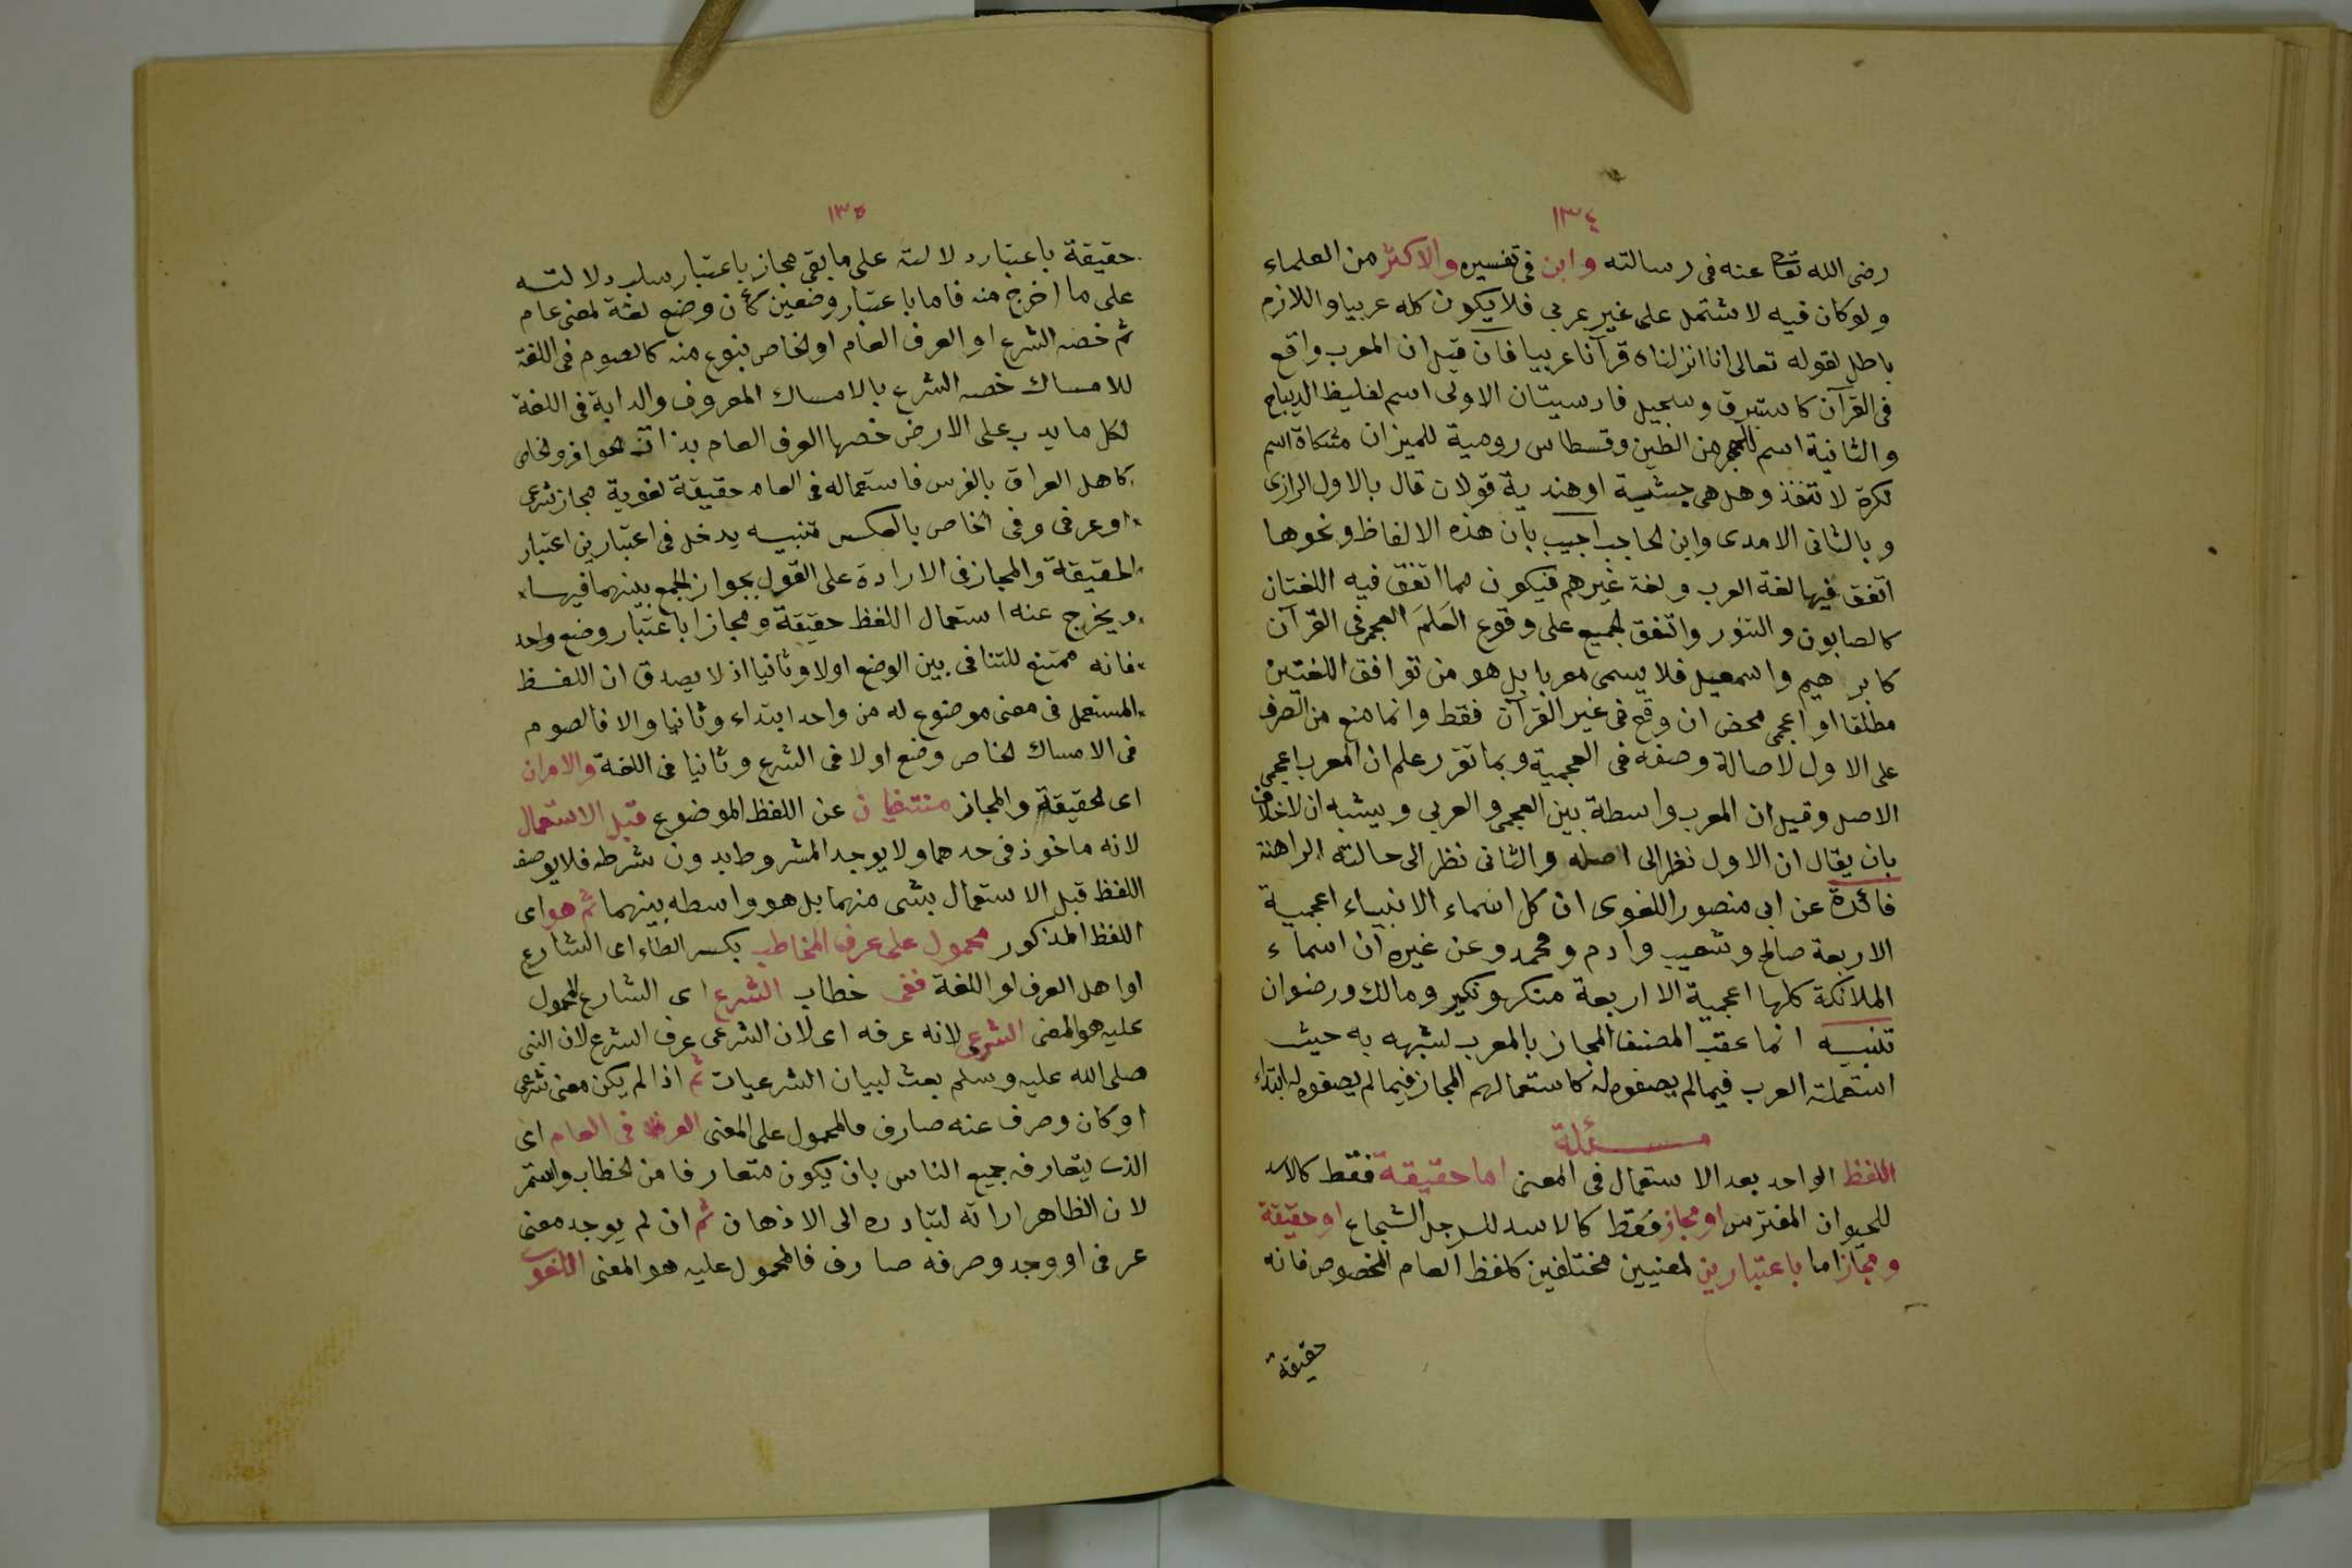 ١٣٤
رضى الله تعالى عنه فى رسالته وابن فى تفسيره والاكثر من العلماء
ولو كان فيه لاشتمل على غير عربى فلا يكون كله عربيا واللازم
باطل لقوله تعالى انا انزلناه قرآنا عربيا فان قيل ان المعرب واقع
فى القرآن كاستبرق وسجيل فارسيتان الاولى اسم لغليظ الديباج
والثانية اسم للحجر من الطين وقسطاس رومية للميزان مشكاة اسم
لكوة لا تنفذ وهل هى حبشية او هندية قولان قال بالاول الرازى
وبالثانى الامدى وابن الحاجب اجيب بان هذه الالفاظ ونحوها
اتفق فيها لغة العرب ولغة غيرهم فيكون مما اتفق فيه اللغتان
كالصابون والتنور واتفق الجميع على وقوع العلم العجمى فى القرآن
كابرهيم واسمعيل فلا يسمى معربا بل هو من توافق اللغتين
مطلقا او اعجمى محض ان وقع فى غير القرآن فقط وانما منع من الصرف
على الاول لاصالة وصفه فى العجمية وبما تقرر علم ان المعرب اعجمى
الاصل وقيل ان المعرب واسطة بين العجمى والعربى ويشبه ان لا خلاف
بان يقال ان الاول نظر الى اصله والثانى نظر الى حالته الراهنة
فائدة عن ابى منصور اللغوى ان كل اسماء الانبياء اعجمية
الا ربعة صالح وشعيب وادم ومحمد وعن غيره ان اسماء
الملائكة كلها اعجمية الا اربعة منكر ونكير ومالك ورضوان
تنبيه انما عقب المصنف المجاز بالمعرب لشبهه به حيث
استعملته العرب فيما لم يضعوه له كاستعمالهم المجاز فيما لم يضعوه له ابتداء
مسئلة
اللفظ الواحد بعد الاستعمال فى المعنى اما حقيقة فقط كالاسد
للحيوان المفترس او مجاز فقط كالاسد للرجل الشجاع او حقيقة
ومجاز اما باعتبارين لمعنيين مختلفين كلفظ العام المخصوص فانه
حقيقة
١٣٥
حقيقة باعتبار دلالته على ما بقى مجاز باعتبار سلب دلالته
على ما اخرج منه فاما باعتبار وضعين كأن وضع لغة لمعنى عام
ثم خصه الشرع او العرف العام او الخاص بنوع منه كالصوم فى اللغة
للامساك خصه الشرع بالامساك المعروف والدابة فى اللغة
لكل ما يدب على الارض خصها العرف العام بذات الحوافر والخاص
كاهل العراق بالفرس فاستعماله فى العام حقيقة لغوية مجاز شرعى
او عرفى وفى الخاص بالعكس تنبيه يدخل فى اعتبارين اعتبار
الحقيقة والمجاز فى الارادة على القول بجواز الجمع بينهما فيها
ويخرج عنه استعمال اللفظ حقيقة ومجازا باعتبار وضع واحد
فانه ممتنع للتنافى بين الوضع اولا وثانيا اذ لا يصدق ان اللفظ
المستعمل فى معنى موضوع له من واحد ابتداء وثانيا والا فالصوم
فى الامساك الخاص وضع اولا فى الشرع وثانيا فى اللغة والامران
اى الحقيقة والمجاز منتفيان عن اللفظ الموضوع قبل الاستعمال
لانه ماخوذ فى حدهما ولا يوجد المشروط بدون شرطه فلا يوصف
اللفظ قبل الاستعمال بشى منهما بل هو واسطه بينهما ثم هو اى
اللفظ المذكور محمول على عرف المخاطب بكسر الطاء اى الشارع
او اهل العرف او اللغة ففى خطاب الشرع اى الشارع المحمول
عليه هو المعنى الشرعى لانه عرفه اى لان الشرعى عرف الشرع لان النبى
صلى الله عليه وسلم بعث لبيان الشرعيات ثم اذا لم يكن معنى شرعى
او كان وصرف عنه صارف فالمحمول على المعنى العرفى العام اى
الذى يتعارفه جميع الناس بان يكون متعارفا من الخطاب واستمر
لان الظاهر ارادته لتبادره الى الاذهان ثم ان لم يوجد معنى
عرفى او وجد وصرفه صارف فالمحمول عليه هو المعنى اللغوى